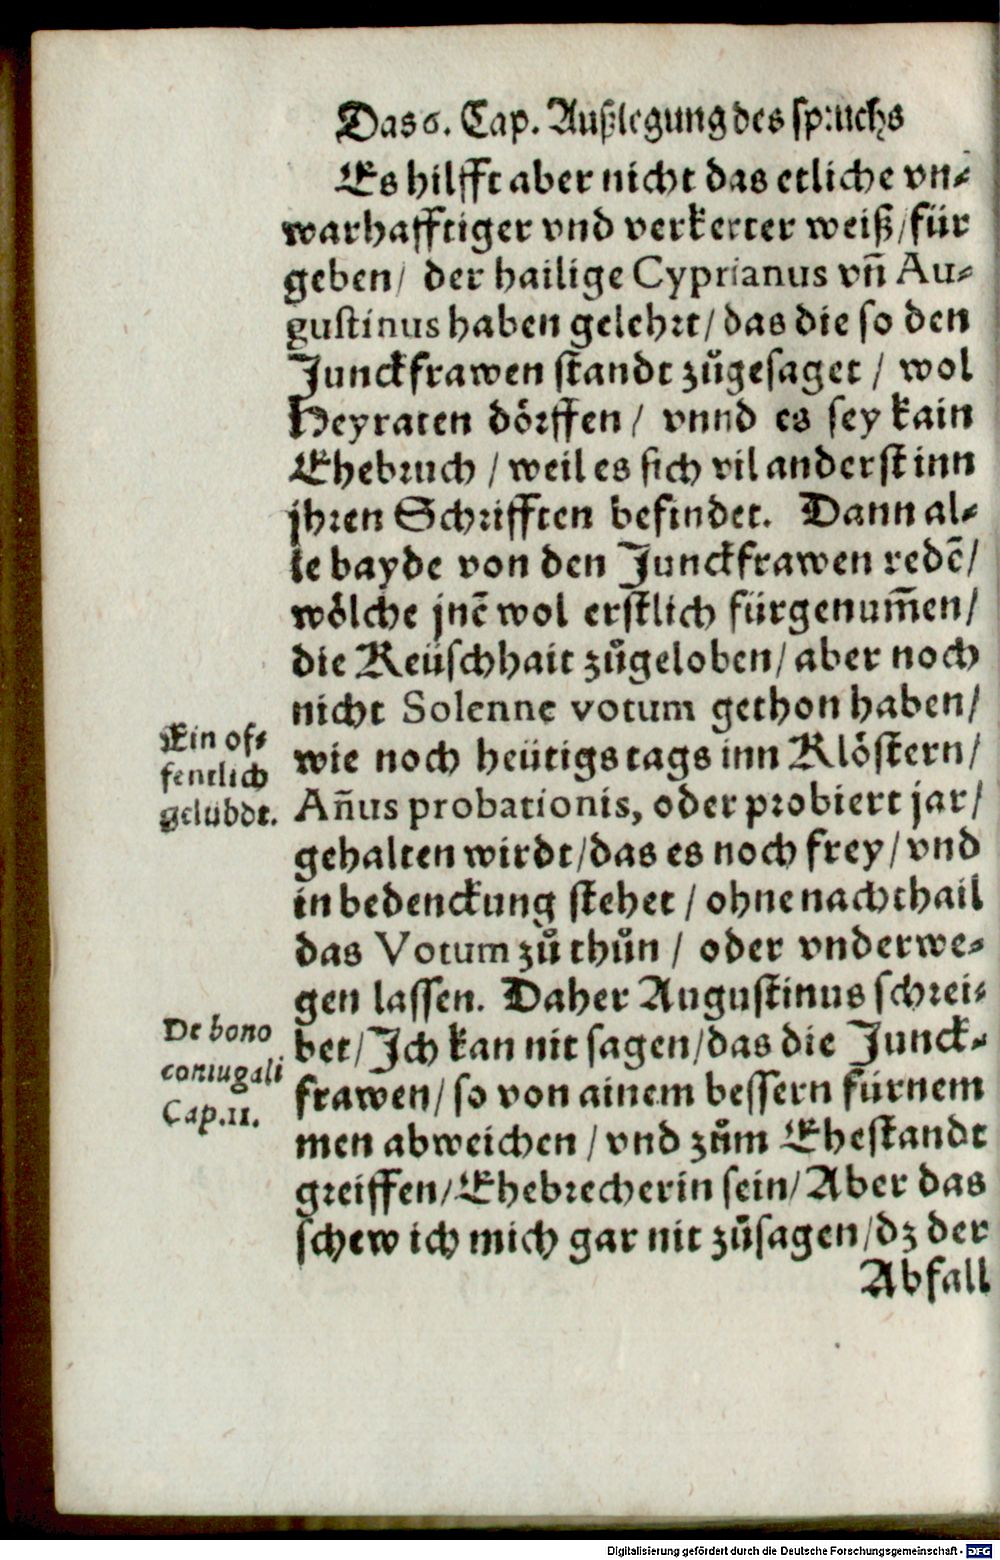 Das 6. Cap. Außlegung des spruchs
Es hilfft aber nicht das etliche vn⸗
warhafftiger vnd verkerter weiß/für
geben/ der hailige Cyprianus vñ Au⸗
gustinus haben gelehrt/das die so den
Junckfrawen standt zůgesaget / wol
Heyraten dörffen / vnnd es sey kain
Ehebruch / weil es sich vil anderst inn
jhren Schrifften befindet. Dann al⸗
le bayde von den Junckfrawen redē/
wölche jnē wol erstlich fürgenum̄en/
die Keüschhait zůgeloben/aber noch
nicht Solenne votum gethon haben/
wie noch heütigs tags inn Klöstern/
Añus probationis, oder probiert jar/
gehalten wirdt/das es noch frey/vnd
in bedenckung stehet / ohne nachthail
das Votum zů thůn / oder vnderwe⸗
gen lassen. Daher Augustinus schrei⸗
bet/Ich kan nit sagen/das die Junck⸗
frawen/so von ainem bessern fürnem
men abweichen /vnd zům Ehestandt
greiffen/Ehebrecherin sein/Aber das
schew ich mich gar nit zůsagen/dz der
Abfall
Ein of⸗
fentlich
gelübdt.
De bono
coniugali
Cap.11.
Digitalisierung gefördert durch die Deutsche Forschungsgemeinschaft - DFG